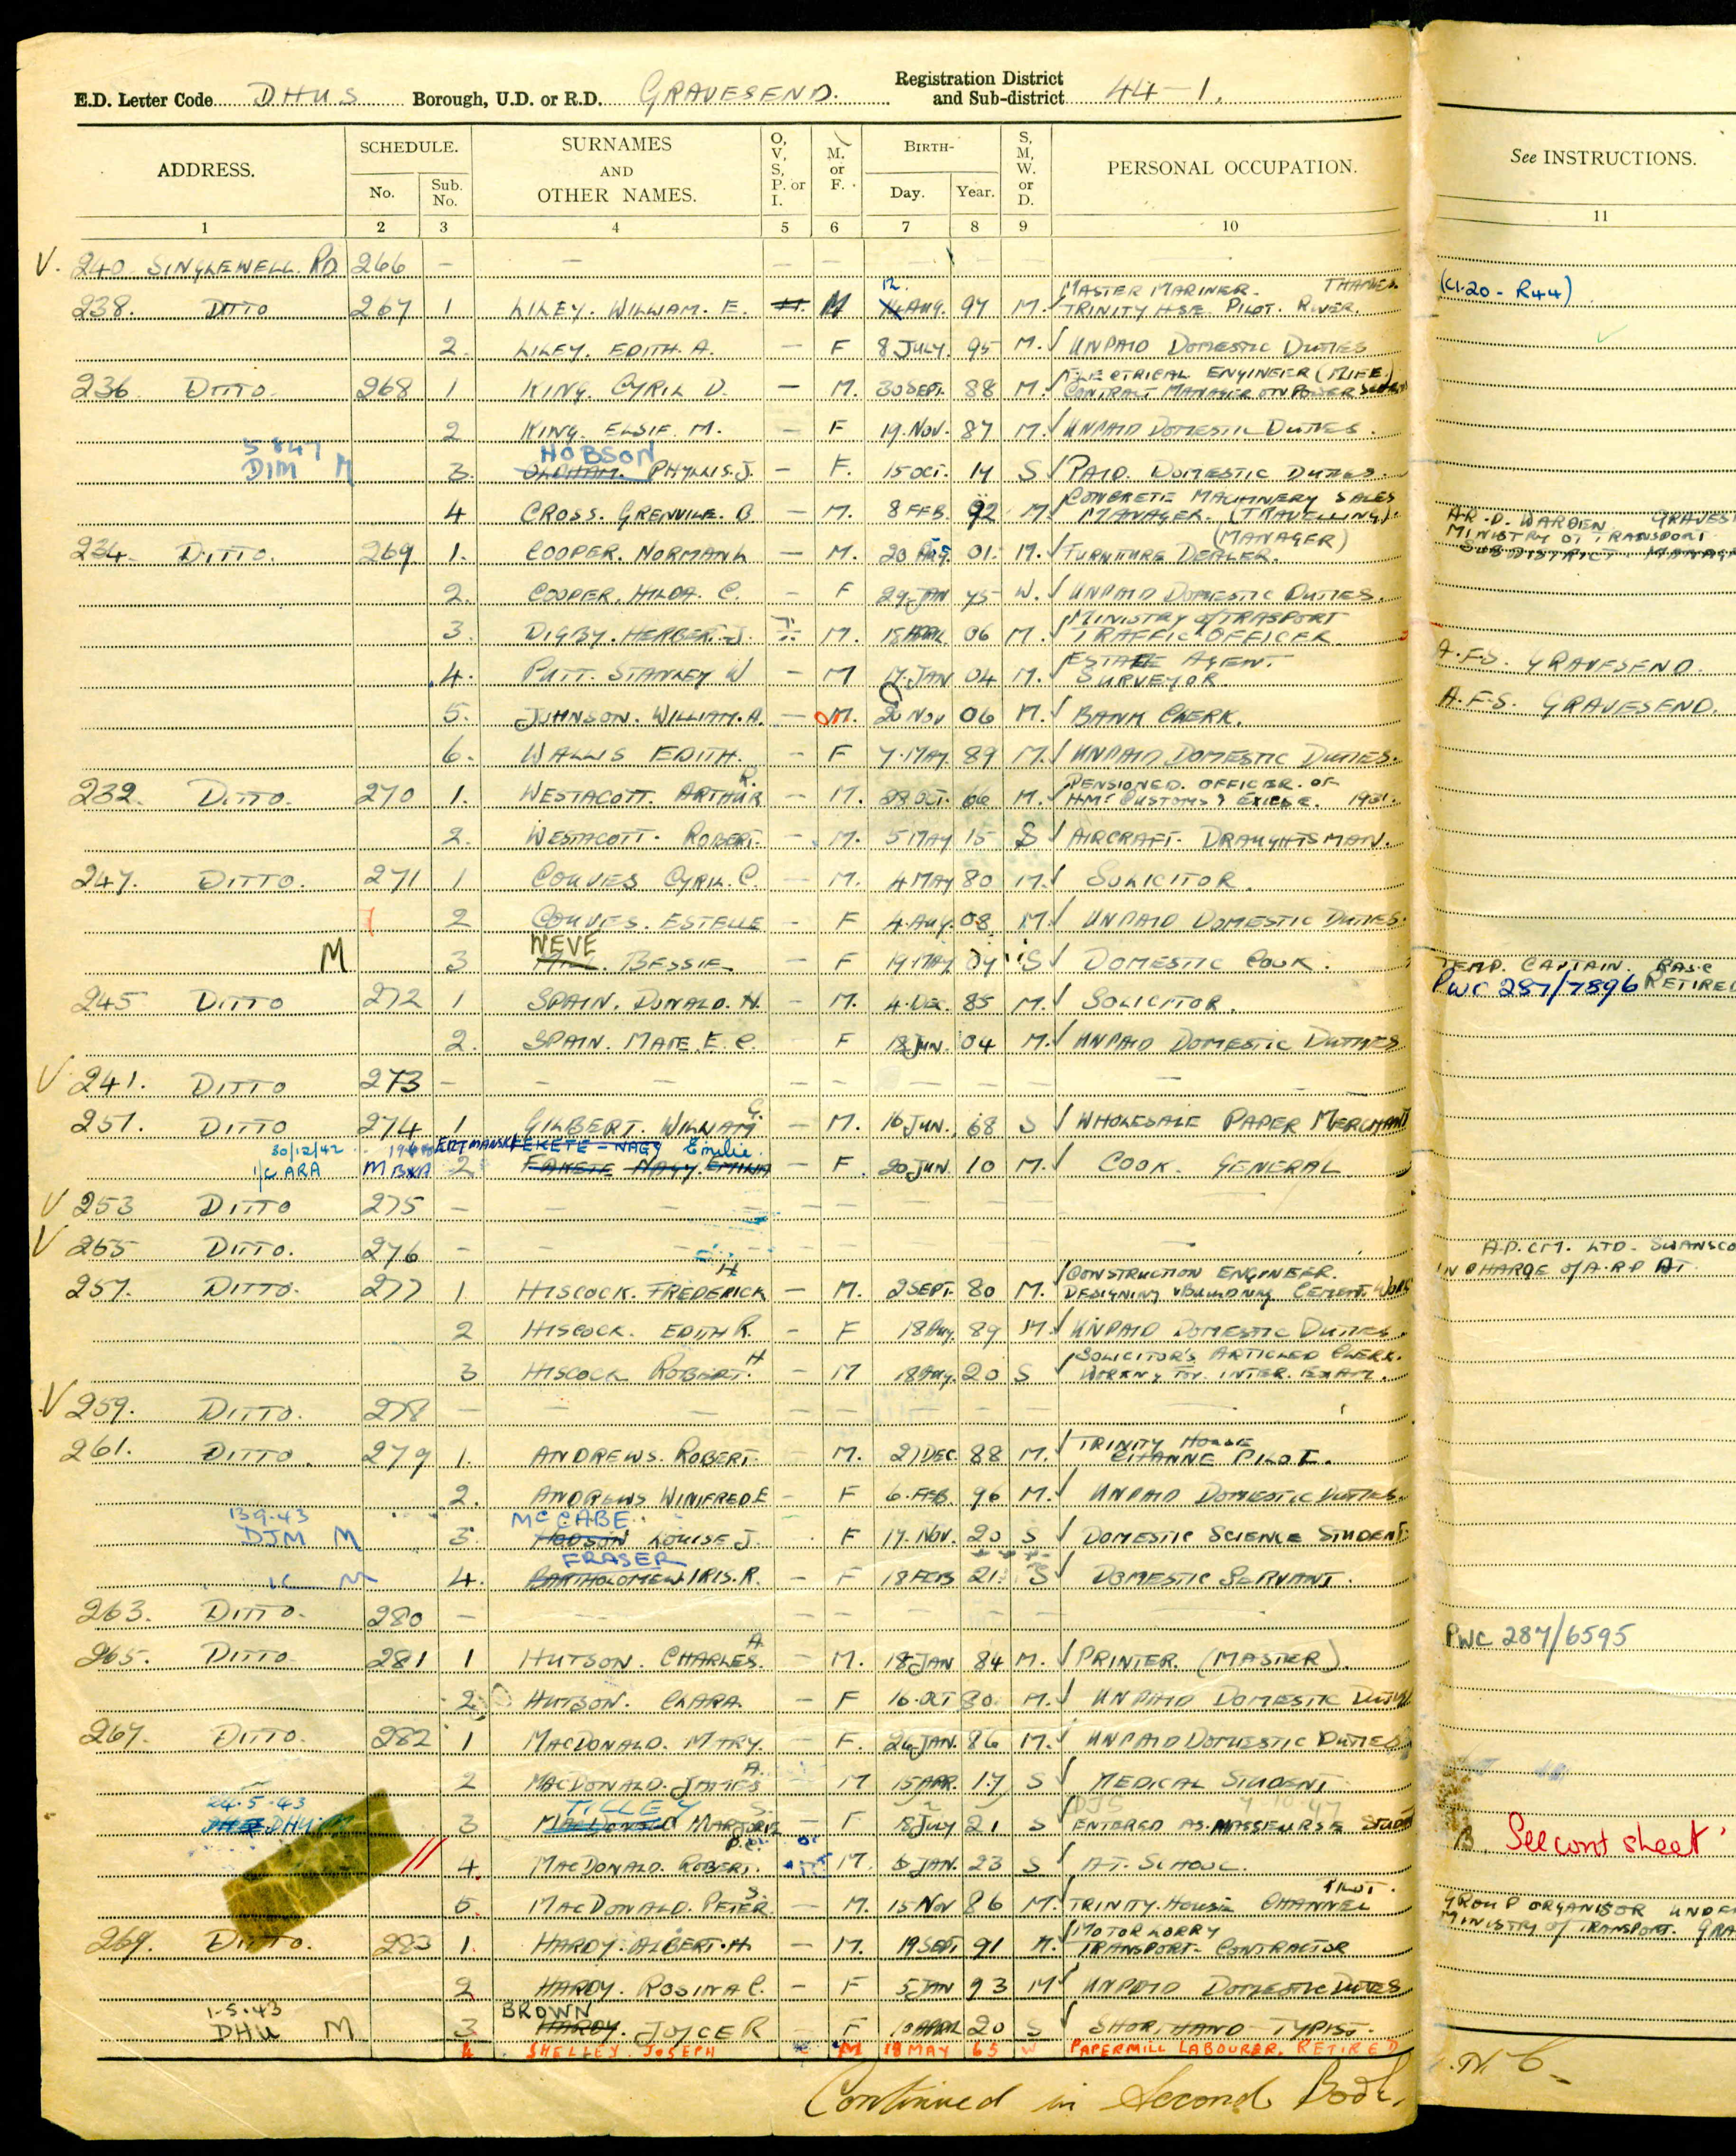 E.D. Letter Code DHUS Borough, U.D. or R.D. GRAVESEND. Registration District and Sub-district 44-1.
ADDRESS. SCHEDULE. No. Sub. No. SURNAMES AND OTHER NAMES. O, V, S, P. or I. M. or F. BIRTH- Day. Year. S, M, W. or D. PERSONAL OCCUPATION. See INSTRUCTIONS.
1 2 3 4 5 6 7 8 9 10 11
V. 240 SINGLEWELL RD 266 - - - - - - -
12. MASTER MARINER. THAMES (C1.20 - R44)
238. DITTO 267 1 LILEY. WILLIAM. E. M AUG. 97 M. TRINITY HSE. PILOT. RIVER.
2. LILEY. EDITH. A. - F 8 JULY. 95 M. UNPAID DOMESTIC DUTIES
ELECTRICAL ENGINEER (MIEE.)
236 DITTO. 268 1 KING. CYRIL D. - M. 30 SEPT. 88 M. CONTRACT MANAGER ON POWER
2 KING. ELSIE. M. - F 19. NOV. 87 M. UNPAID DOMESTIC DUTIES.
5847 HOBSON
DJM M 3. OLDHAM. PHYLLIS. J. - F. 15 OCT. 14 S PAID. DOMESTIC DUTIES.
CONCRETE MACHINERY SALES
4 CROSS. GRENVILE. B - M. 8 FEB. 92 M MANAGER. (TRAVELLING). A.R.P. WARDEN GRAVES
(MANAGER) MINISTRY OF TRANSPORT
234 DITTO. 269 1. COOPER. NORMAN L - M. 20 AUG. 01. M. FURNITURE DEALER. SUB DISTRICT. MANAG
2. COOPER. HILDA. C. - F 29. JAN 75 W. UNPAID DOMESTIC DUTIES.
MINISTRY of TRASPORT
3. DIGBY. HERBERT. J. M. 18 APRIL 06 M. TRAFFIC OFFICER
ESTATE AGENT. A.F.S. GRAVESEND.
4. PUTT. STANLEY W - M 17. JAN 04 M. SURVEYOR.
5. JOHNSON. WILLIAM. A. - M. 20 NOV 06 M. BANK CLERK. A.F.S. GRAVESEND.
6. WALLIS EDITH. - F 7. MAY 89 M. UNPAID DOMESTIC DUTIES.
R. PENSIONED. OFFICER. OF
232. DITTO. 270 1. WESTACOTT. ARTHUR - M. 28 OCT. 66 M. HMC CUSTOMS & EXCISE. 1931.
2. WESTACOTT. ROBERT. - M. 5 MAY 15 S AIRCRAFT. DRAUGHTSMAN.
247. DITTO. 271 1 COUVES CYRIL. C. - M. 4 MAY 80 M. SOLICITOR.
2 COUVES. ESTELLE - F 4. AUG. 08 M. UNPAID DOMESTIC DUTIES.
WEVE
M 3 BESSIE. - F 19. MAY 04 S DOMESTIC COOK. TEMP. CAPTAIN. RASC
245 DITTO 272 1 SPAIN. DONALD. H. - M. 4. DEC. 85 M. SOLICITOR. PWC 287/7896 RETIRED
2. SPAIN. MATE. E. C. - F 18 JUN. 04 M. UNPAID DOMESTIC DUTIES
V 241. DITTO 273 - - - - - - -
G.
251. DITTO 274 1 GILBERT. WILLIAM - M. 16 JUN. 68 S WHOLESALE PAPER MERCHANT
30/12/42 FEKETE-NAGY Emilie.
ARA M BXA 2 FAKETE NAGY. EMILIA - F. 20 JUN. 10 M. COOK. GENERAL
V 253 DITTO 275 - - - -
V 255 DITTO. 276 - - - -
H CONSTRUCTION ENGINEER. A.P.C.M. LTD. SWANSCO
257. DITTO. 277 1. HISCOCK. FREDERICK - M. 2 SEPT. 80 M. DESIGNING & BUILDING CEMENT WORKS IN CHARGE of A.R.P AT
2 HISCOCK. EDITH R. - F 18 AUG. 89 M. UNPAID DOMESTIC DUTIES.
H SOLICITOR'S ARTICLED CLERK.
3 HISCOCK ROBERT. - M 18 AUG. 20 S WORKING FOR INTER. EXAM.
V 259. DITTO. 278 - - - -
TRINITY HOUSE
261. DITTO. 279 1. ANDREWS. ROBERT. - M. 27 DEC. 88 M. CHANNE PILOT.
2. ANDREWS WINIFRED E - F 6. FEB. 96 M. UNPAID DOMESTIC DUTIES.
13.9.43 McCABE.
DJM M 3. HODSON LOUISE J. F 17. NOV. 20 S DOMESTIC SCIENCE STUDENT.
FRASER
M 4. BARTHOLOMEW IRIS. R. - F 18 FEB 21. S DOMESTIC SERVANT.
263. DITTO. 280 - - - -
A.
265. DITTO 281 1 HUTSON. CHARLES. - M. 18 JAN 84 M. PRINTER (MASTER). PWC 287/6595
2. HUTSON. CLARA. - F 16. OCT 80. M. UNPAID DOMESTIC DUTIES
267. DITTO. 282 1 MACDONALD. MARY. - F. 26 JAN. 86 M. UNPAID DOMESTIC DUTIES
A.
2 MACDONALD. JAMES - M 15 APR. 17 S MEDICAL STUDENT
24.5.43 TILLEY S.
DHU M 3 MACDONALD MARJORIE - F 18 JULY 21 S ENTERED AS. MASSEURSE STUDT B. See cont sheet
4. MACDONALD. ROBERT. M. 6 JAN. 23 S AT. SCHOOL.
S. PILOT.
5. MACDONALD. PETER. - M. 15 NOV 86 M. TRINITY. HOUSE CHANNEL GROUP ORGANISOR UNDE
MOTOR LORRY MINISTRY of TRANSPORT. GRA
269. DITTO. 283 1. HARDY. ALBERT. H. - M. 19 SEPT 91 M. TRANSPORT. CONTRACTOR
2 HARDY. ROSINA C. - F 5 JAN 93 M UNPAID DOMESTIC DUTIES
1.5.43 BROWN
DHU M 3 HARDY. JOYCE R - F 10 APRIL 20 S SHORTHAND TYPIST.
4. SHELLEY. JOSEPH M 18 MAY 65 W PAPERMILL LABOURER. RETIRED
Continued in Second Book.